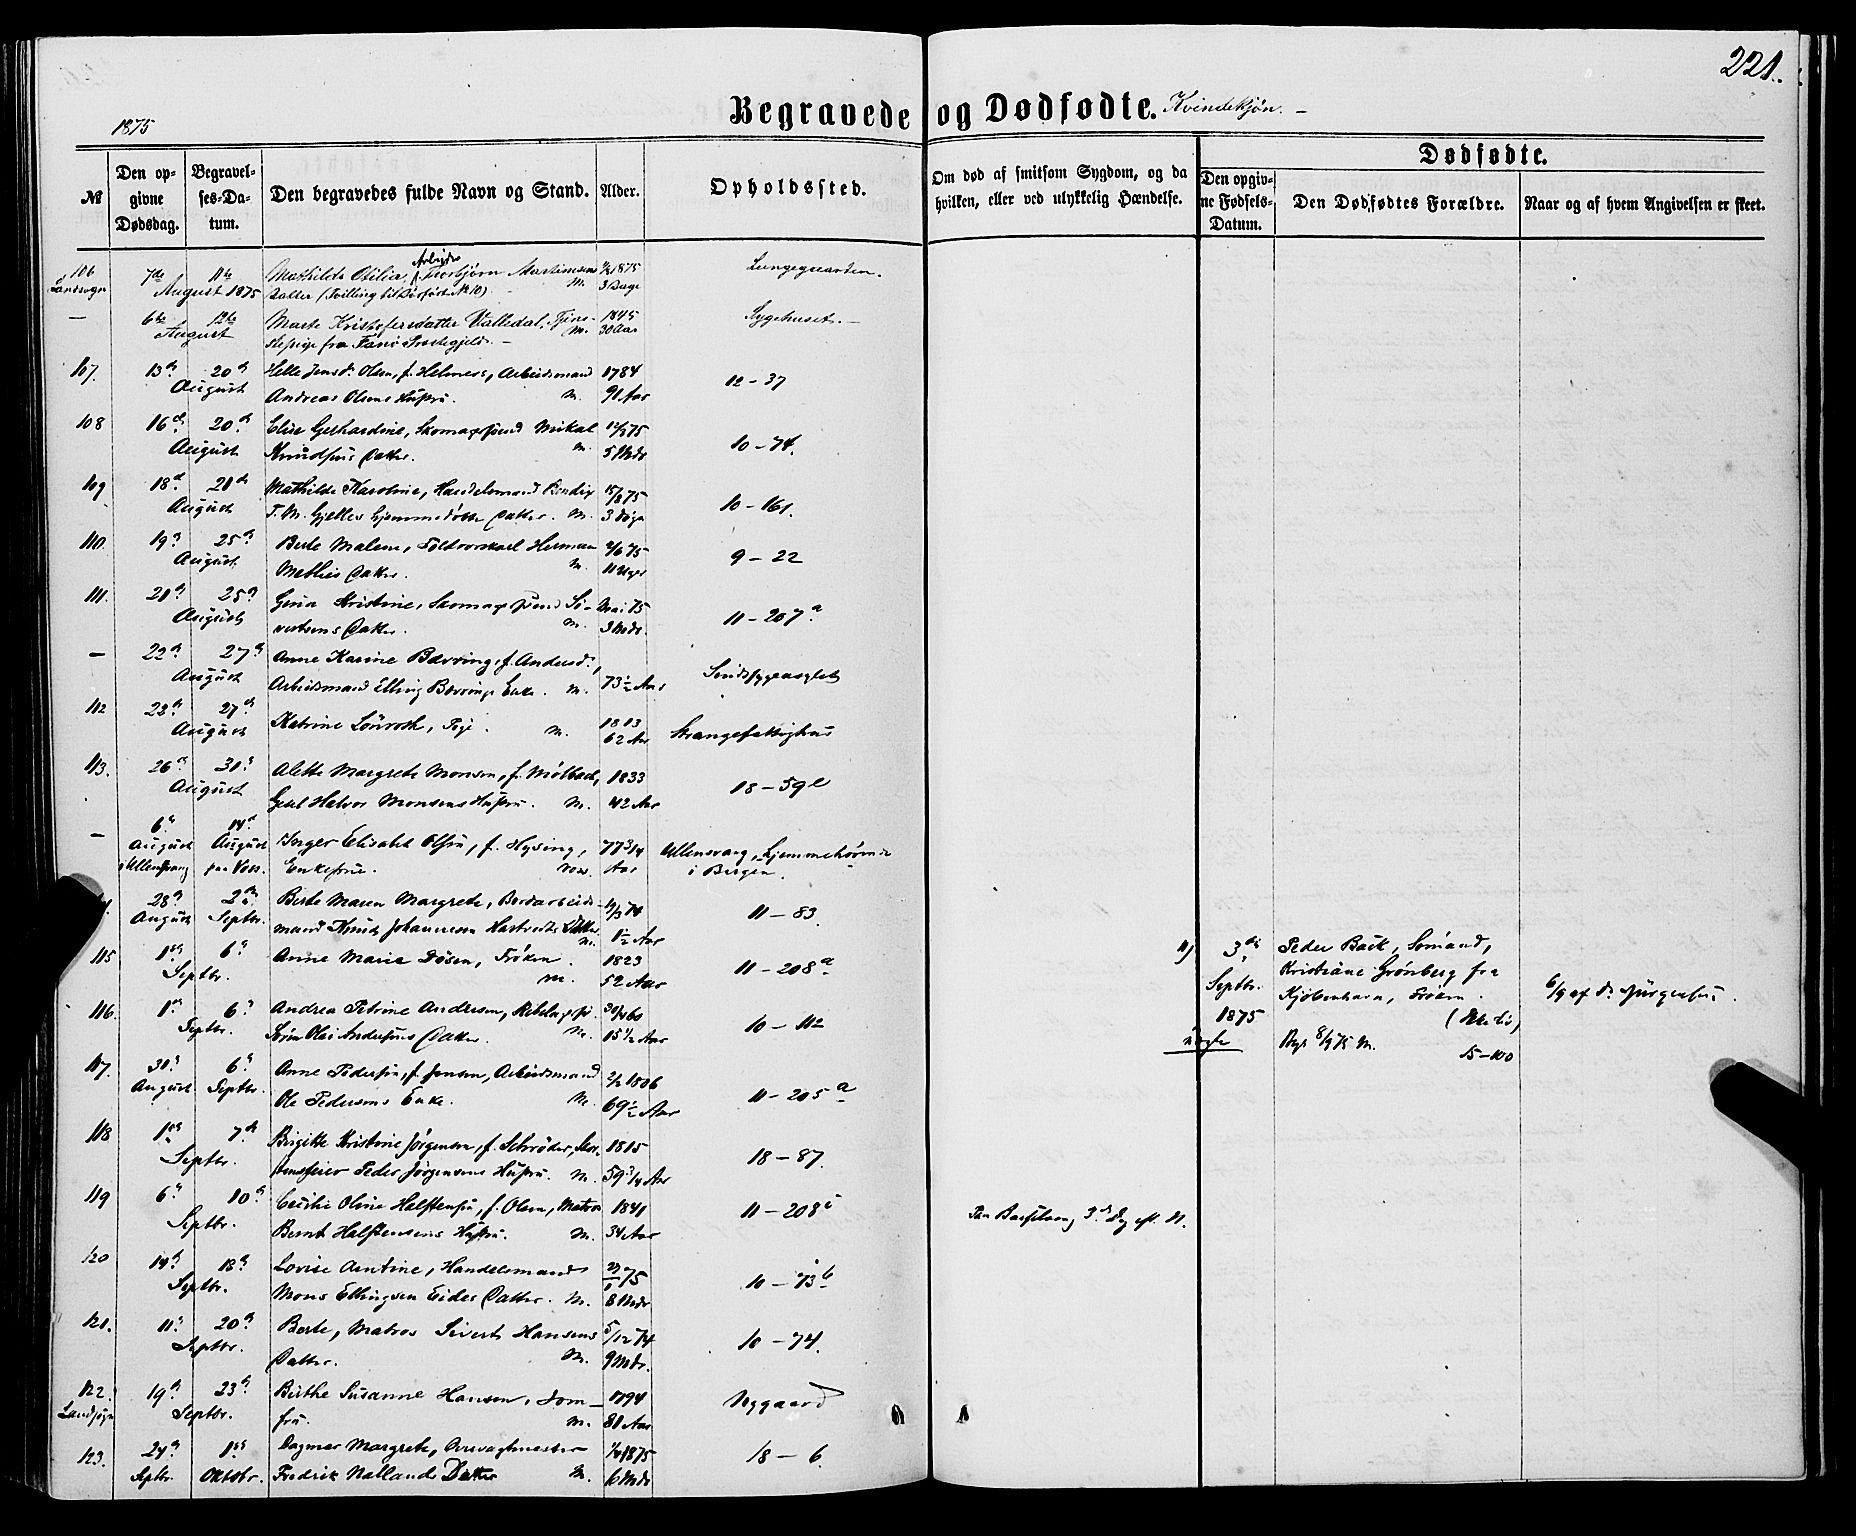 221.
1875
Begravede og Dødfødte. Kvindekjøn. –
№
Den opgivne Dødsdag.
Begravelses-Datum.
Den begravedes fulde Navn og Stand.
Alder.
Opholdssted.
Om død af smitsom Sygdom, og da hvilken, eller ved ulykkelig Hændelse.
Dødfødte.
Den opgivne Fødsels-Datum.
Den Dødfødtes Forældre.
Naar og af hvem Angivelsen er skeet.
106 7de 11te Mathilde Otilie, Arbeids Torbjørn Martinsens 1875 Lungegaarden.
Landsogn August 1875 Datter (Tvilling til Dødfødt № 10). – M. 3 Dage
– 6te 12te Marte Kristofersdatter Valledal, Tjene- 1845 Sygehuset. –
August fra Fane Præstegjeld. – M. 30 Aar
107. 13de 20de Helle Jensd. Olsen, f. Helmers, Arbeidsmand 1784 12 – 37
August Andreas Olsens Hustru. M. 91 Aar
108 16de 20de Elise Gerhardine, Skomagersvend Mikal 12/3 75 10 – 74.
August Knudsens Datter. M. 5 Mdr
109 18de 21de Mathilde Karoline, Handelsmand Bendix 15/8 75 10 – 161.
August T. M. Gjelles hjemmedøbte Datter. M. 3 Dage
110. 19de 25de Berte Malene, Toldvorskarl Herman 2/6 75 9 – 22
August Mathies Datter. M. 11 Uger
111. 21de 25de Gina Kristine, Skomagersvend Si- Mai 75 11 – 207a
August vertsens Datter. M. 3 Mdr.
– 22de 27de Anne Karine Børving, f. Andersd.,
August Arbeidsmand Elling Børvings Enke. M. 73½ Aar Sindssygeasylet
112 22de 27de Katrine Lönroth, Pige. M. 1813
August 62 Aar Strangefattighus
113. 26de 31te Alette Margrete Monsen, f. Mølbach, 1833 18 – 59e
August Halvor Monsens Hustru. M. 42 Aar
– 6te 14de
August August Inger Elisabet Olsen, f. Hysing, 77 3/4 Ullensvang, hjemmehørende
i Ullensvang paa Voss. Enkefrue. Voss. Aar i Bergen.
28de 2den Berte Maren Margrete, Bordarbeids- 19/3 74 11 – 83.
August Septbr. mand Knud Johannesen Hartvedts Datter M. 1½ Aar
115 1ste 6te Anne Marie Døsen, Frøken. 1823 11 – 208a
Septbr. M. 52 Aar
116. 1ste 6te Andrea Petrine Andersen, 30/4 60 10 – 112
Septbr. Søren Olai Andersens Datter. M. 15 1/2 Aar
117. 30te 6te Anne Pedersen, f. Jensen, Arbeidsmand 2/2 1806 11 – 205a
August Septbr. Ole Pedersens Enke. M. 69½ Aar
118 1ste 7de Birgitte Kristine Jørgensen, f. Schrøder, Skor- 1815 18 – 87.
Septbr. stensfeier Peder Jørgensens Hustru. M. 59 3/4 Aar
119 6te 10de Cecilie Oline Halstensen, f. Olsen, Matros 1841 11 – 208i Paa Barselseng, 3de Dag eft. N.
Septbr. Bernt Halstensens Hustru. M. 34 Aar
120 14de 18de Lovise Antine, Handelsmand 75 10 – 73b
Septbr. Mons Ellingsen Eides Datter. M. 8 Mdr
121. 11te 20de Berte, Matros Sivert Hansens 5/12 74 10 – 74.
Septbr. Datter. M. 9 Mdr.
122. 19de 23de Birthe Susanne Hansen, Jom- 1794 Nygaard
Landsogn Septbr. fru. M. 81 Aar
123. 24de 1ste Dagmar Margrete, Overvagtmester 1875 18 – 6.
Septbr. Oktobr. Fredrik Nallands Datter M. 6 Mdr
11) 3de Peder Back, Sømand,
Septbr. Kristiane Grønberg fra
1875 Kjøbenhavn, Frøken.
uægte Begr. 8/9 75 M. 15 – 100
6/9 af Dr. Jürgensen.